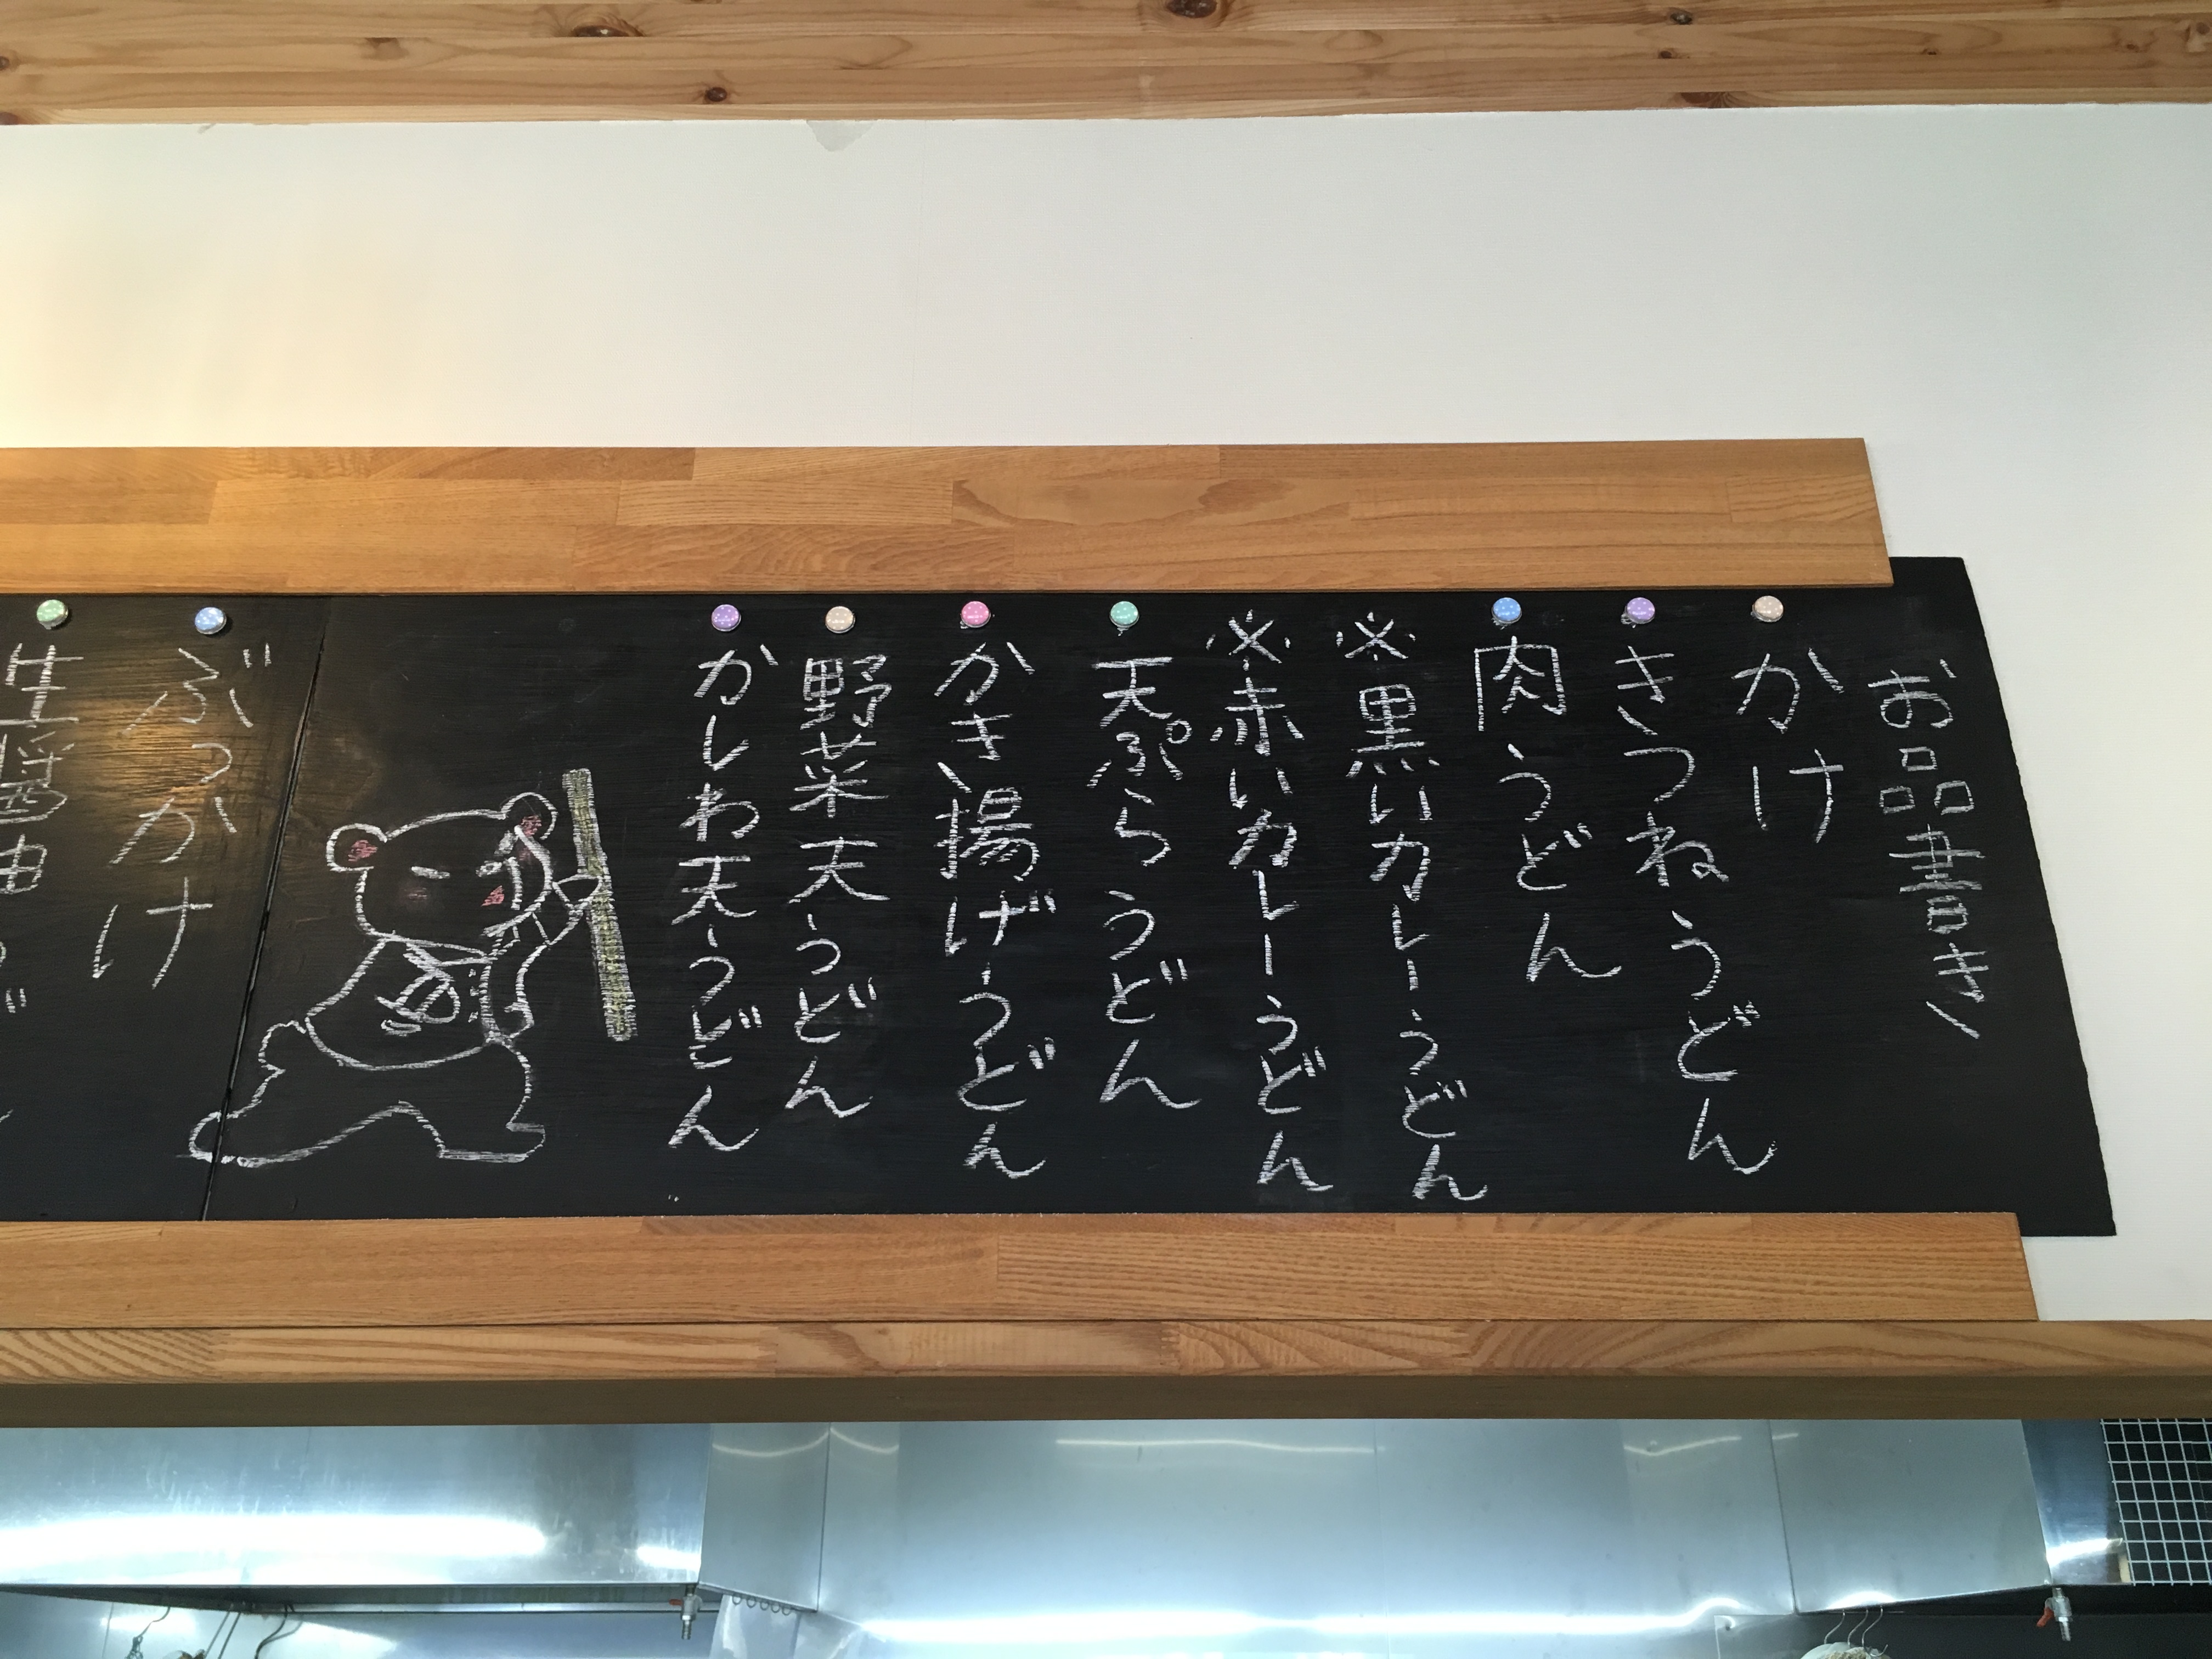 お品書き
かけ
きつねうどん
肉うどん
※黒いカレーうどん
※赤いカレーうどん
天ぷらうどん
かき揚げうどん
野菜天うどん
かしわ天うどん
ぶっかけ
生醤油うど